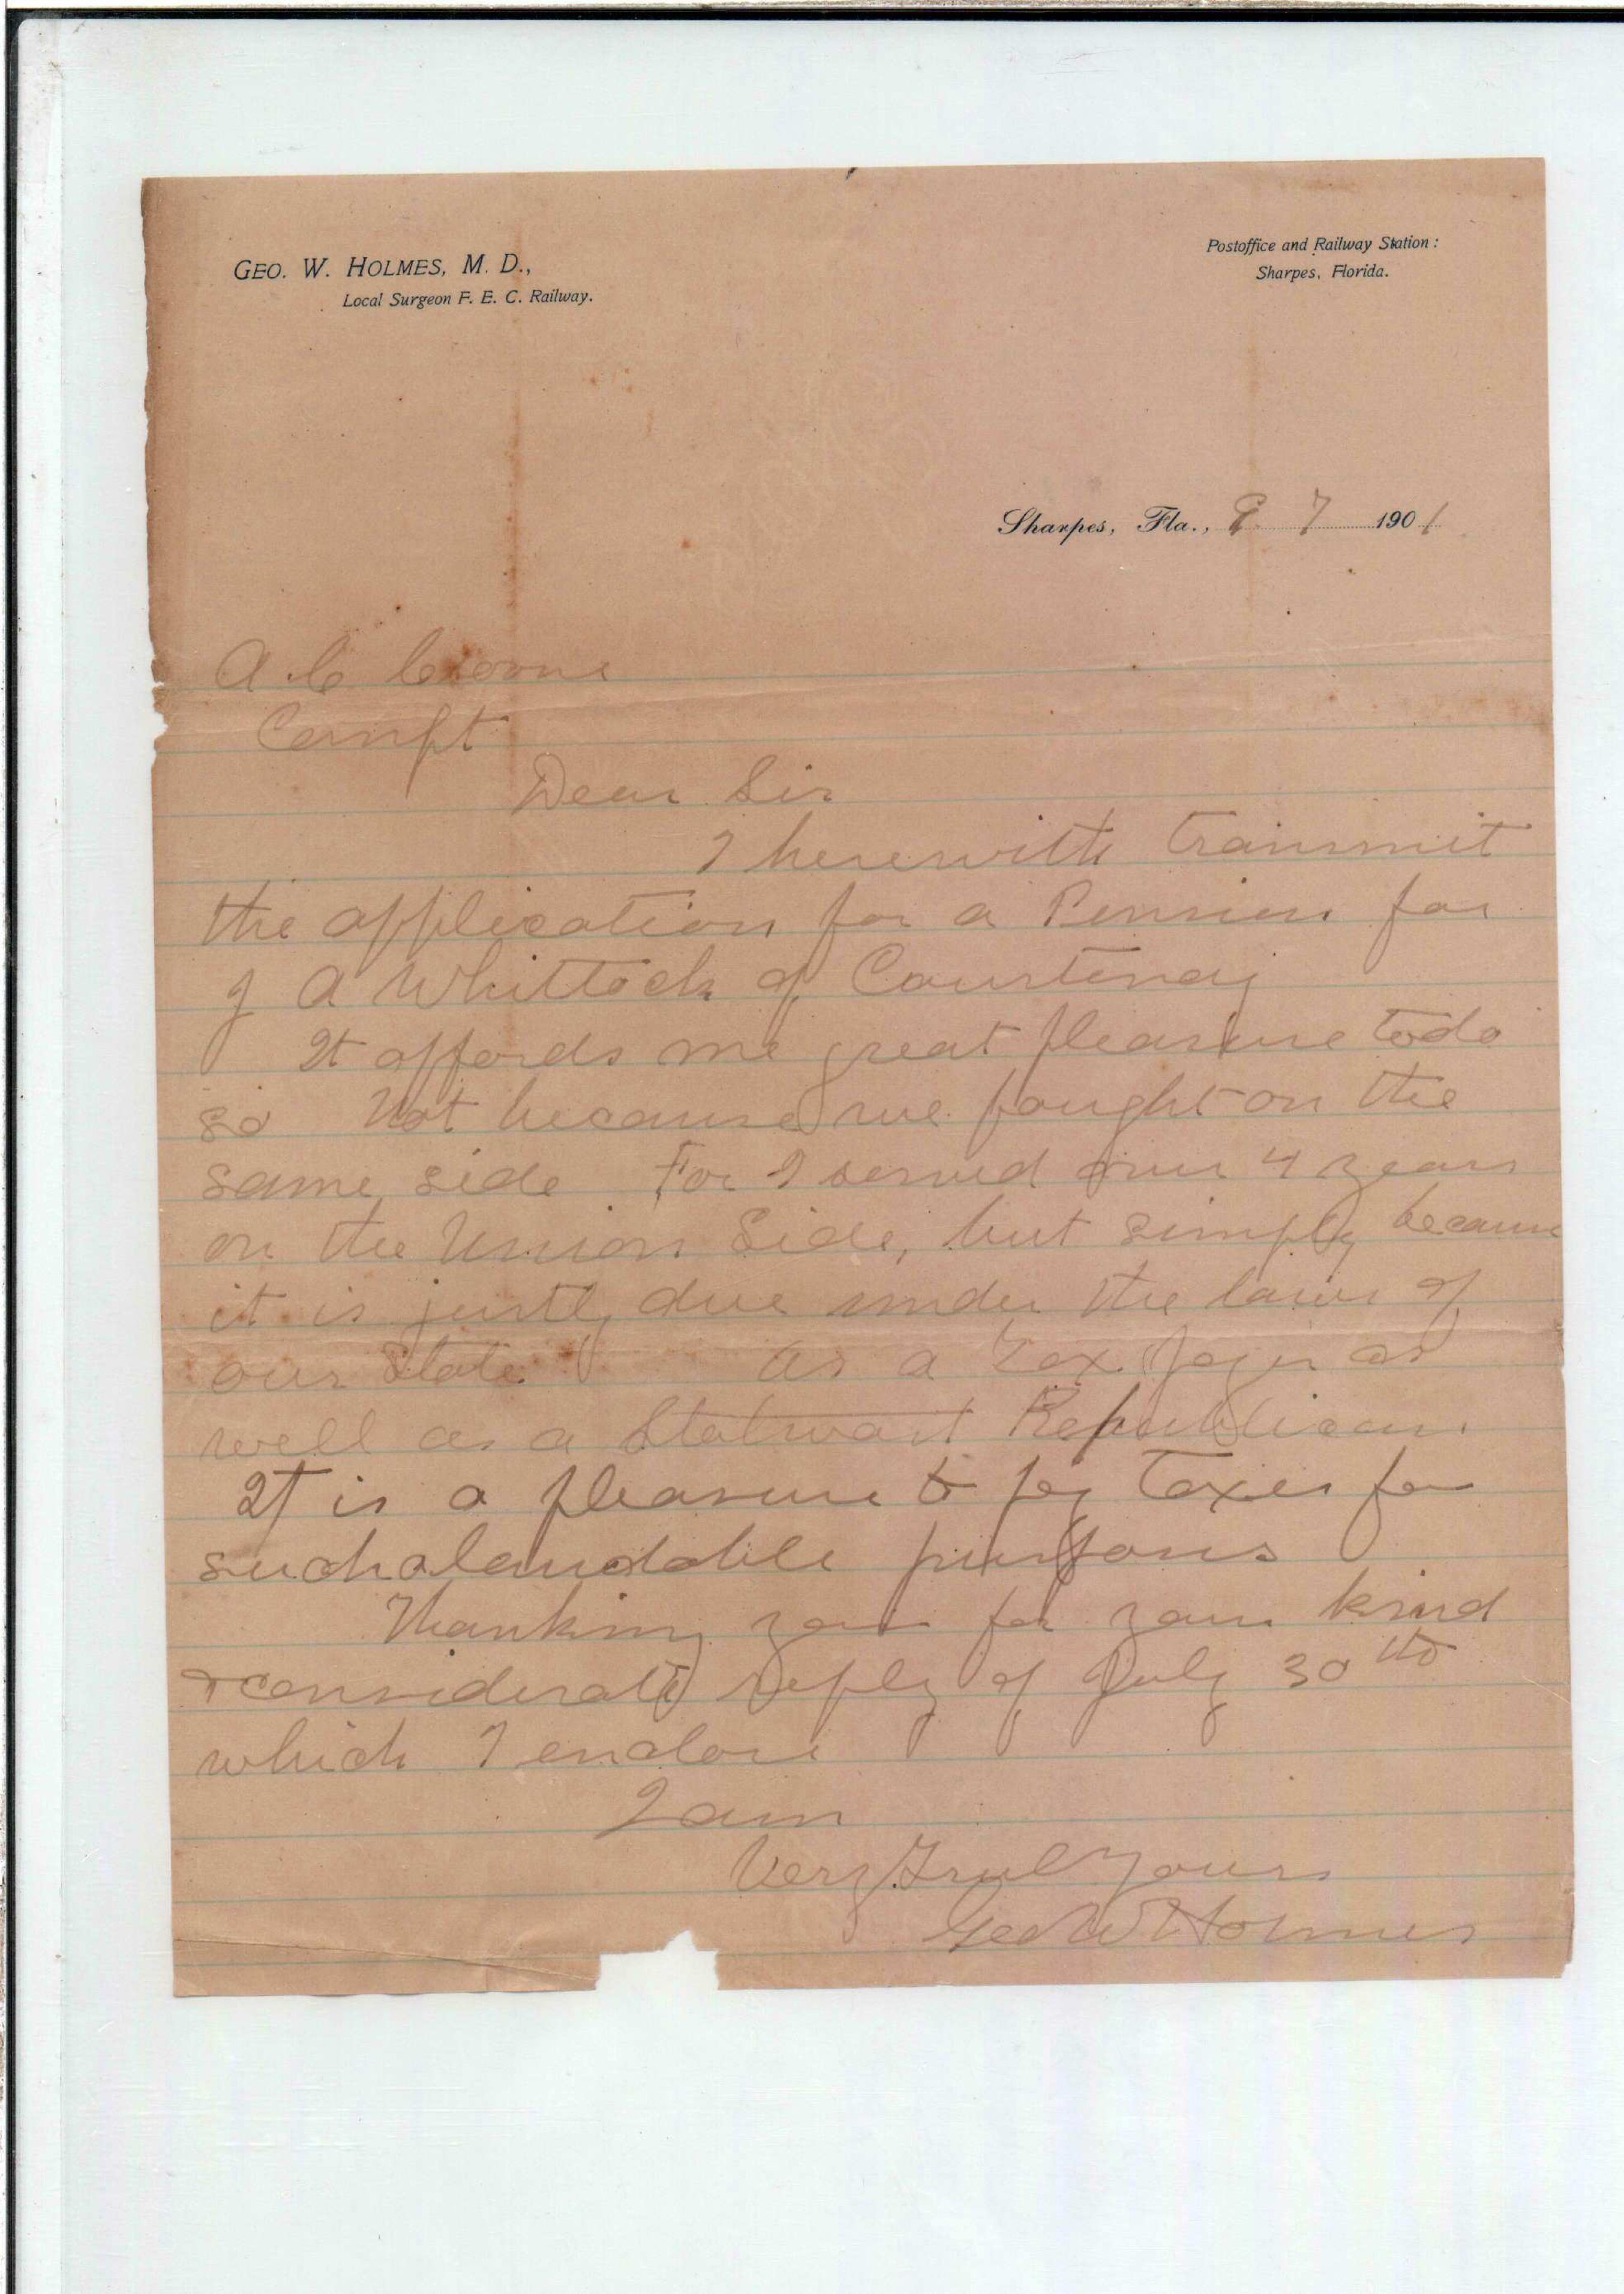 GEO. W. HOLMES, M. D.,
Local Surgeon F. E. C. Railway.
Postoffice and Railway Station:
Sharpes, Florida.
Sharpes, Fla., 7 1901
A C
Compt
Dear Sir
I herewith transmit
the application for a Pension for
J A Whittock of Courtenay
It affords me great pleasure to do
so Not because we fought on the
same side For I served over 4 years
on the Union Side, but simply because
it is justly due under the laws of
our State As a Tax payer as
well as a Stalwart Republican.
It is a pleasure to pay Taxes for
such a laudable purpose
Thanking you for your kind
& considerate reply of July 30th
which I enclose
I am
Very Truly Yours
Geo W Holmes